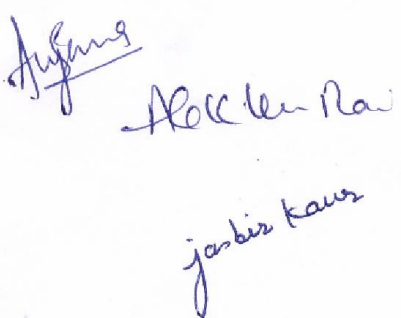 Anjana
Alok Kr Rai
jasbir kaur